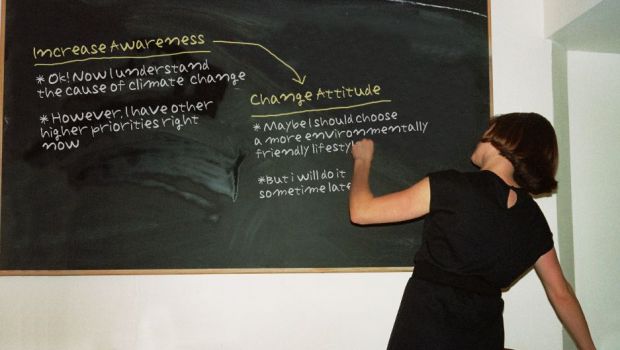 Increase Awareness
* Ok! Now I understand
the cause of climate change
* However, I have other
higher priorities right
now
Change Attitude
* Maybe I should choose
a more environmentally
friendly lifestyl
* But i will do it
sometime late